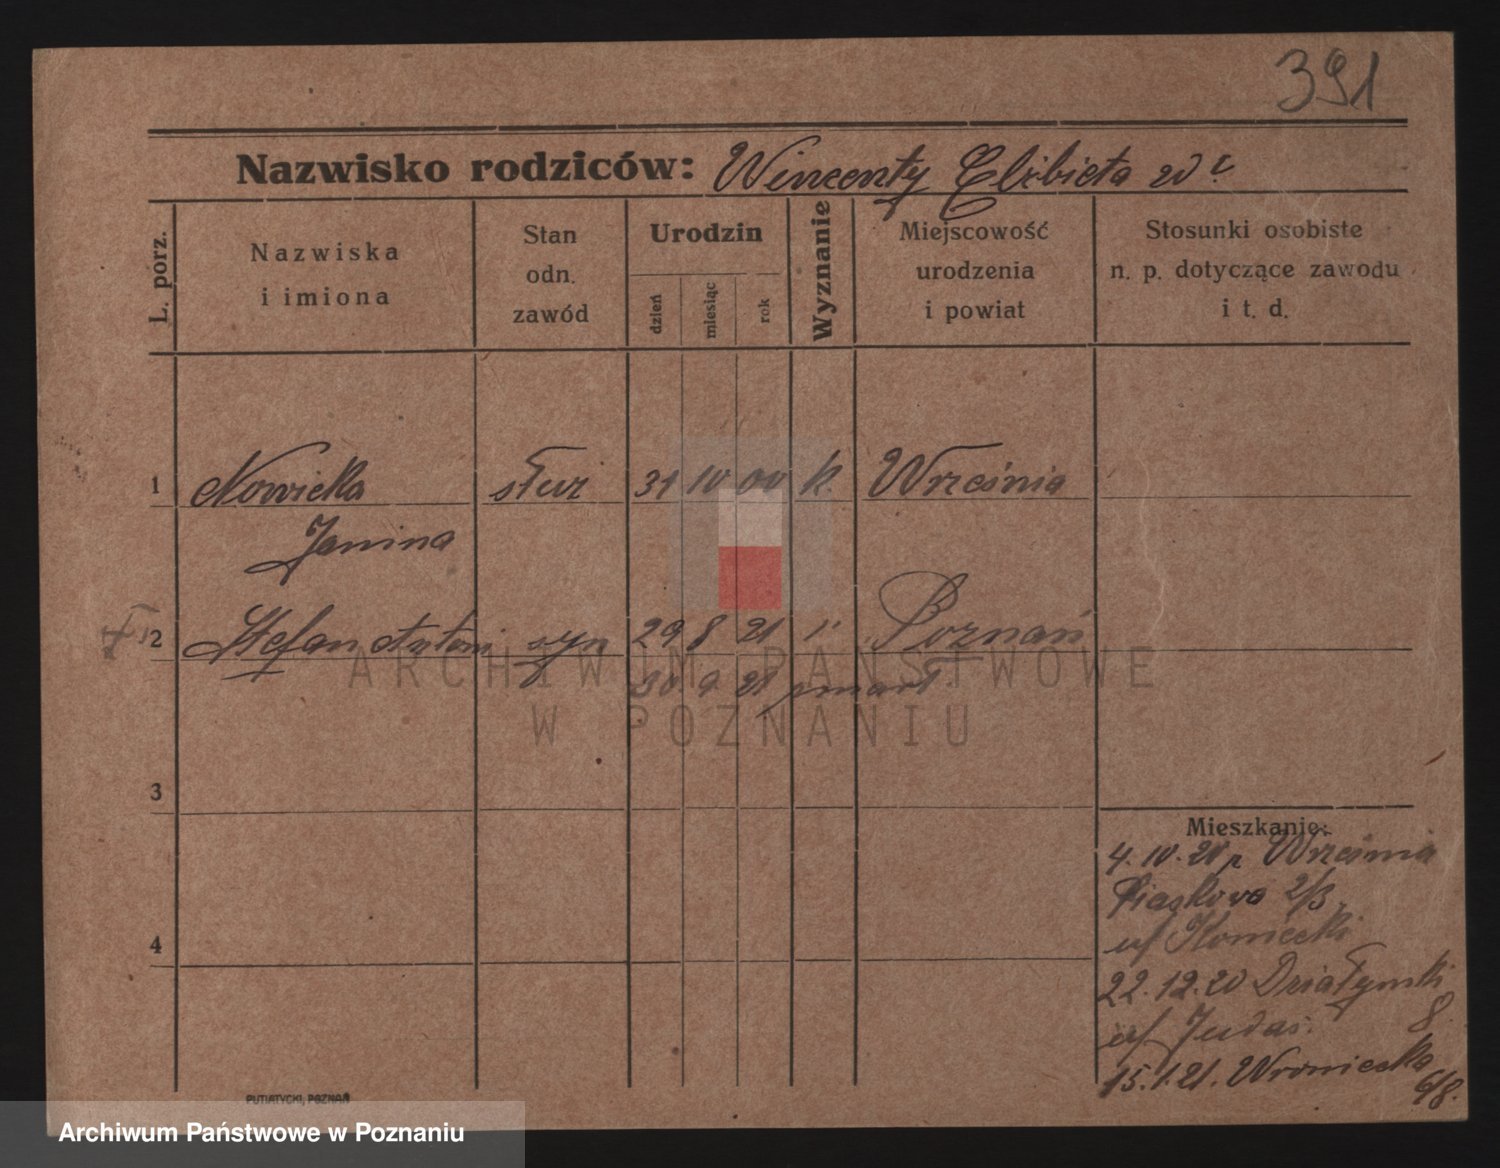 391
Nazwisko rodziców: Wincenty Elżbieta
L. porz.
Nazwiska
i imiona
Stan
odn.
zawód
Urodzin
dzień
miesiąc
rok
Wyznanie
Miejscowość
urodzenia
i powiat
Stosunki osobiste
n. p. dotyczące zawodu
i t. d.
1 Nowicka służ 31 10 00 k. Września
Janina
2 Stefan Antoni syn 29 8 21 " Poznań
30 9 21 zmarł
ARCHIWUM PAŃSTWOWE
W POZNANIU
3
Mieszkanie:
4.10.20 z Września
Piaskowa 2/3
4
22.12.20 Działyński
8.
u/ Judas.
15.1.21. Wroniecka
6/8.
PUTIATYCKI, POZNAŃ
Archiwum Państwowe w Poznaniu